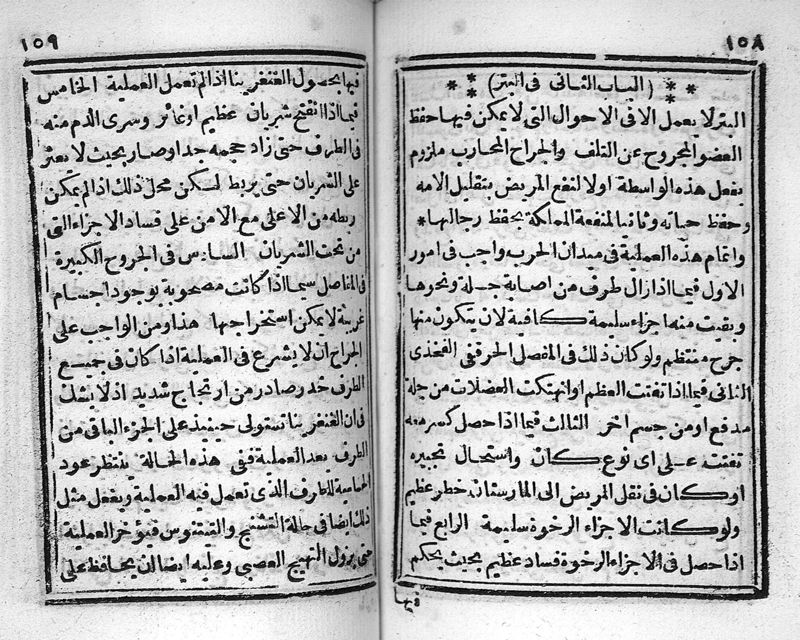 ١٥٨
* * (الباب الثانى فى البتر) * *
البتر لا يعمل الا فى الاحوال التى لا يمكن فيها حفظ
العضو المجروح عن التلف والجراح المحارب ملزوم
بفعل هذه الواسطة اولا لنفع المريض بتقليل الامه
وحفظ حياته وثانيا لمنفعة المملكة بحفظ رجالها *
واتمام هذه العملية فى ميدان الحرب واجب فى امور
الاول فيما اذا زال طرف من اصابة جلة ونحوها
وبقيت منه اجزاء سليمة كافية لان يتكون منها
جرح منتظم ولو كان ذلك فى المفصل الحرقفى الفخذى
الثانى فيما اذا تفتت العظم او انهتكت العضلات من جلة
مدفع او من جسم اخر الثالث فيما اذا حصل كسر معه
تفتت على اى نوع كان واستحال تجبيره
او كان فى نقل المريض الى المارستان خطر عظيم
ولو كانت الاجزاء الرخوة سليمة الرابع فيما
اذا حصل فى الاجزاء الرخوة فساد عظيم بحيث يحكم
فيها
١٥٩
فيها بحصول الغنغرينا اذا لم تعمل العملية الخامس
فيما اذا انفتح شريان عظيم او غائر وسرى الدم منه
فى الطرف حتى زاد حجمه جدا وصار بحيث لا يعثر
على الشريان حتى يربط لكن محل ذلك اذا لم يمكن
ربطه من الاعلى مع الامن على فساد الاجزاء التى
من تحت الشريان السادس فى الجروح الكبيرة
فى المفاصل سيما اذا كانت مصحوبة بوجود اجسام
غريبة لا يمكن استخراجها هذا ومن الواجب على
الجراح ان لا يشرع فى العملية اذا كان فى جميع
الطرف خدر صادر من ارتجاج شديد اذ لا يشك
فى ان الغنغرينا تستولى حينئذ على الجزء الباقى من
الطرف بعد العملية ففى هذه الحالة ينتظر عود
الحساسية للطرف الذى تعمل فيه العملية ويفعل مثل
ذلك ايضا فى حالة التشنج والتيتنوس فيؤخر العملية
حتى يزول التهيج العصبى وعليه ايضا ان يحافظ على